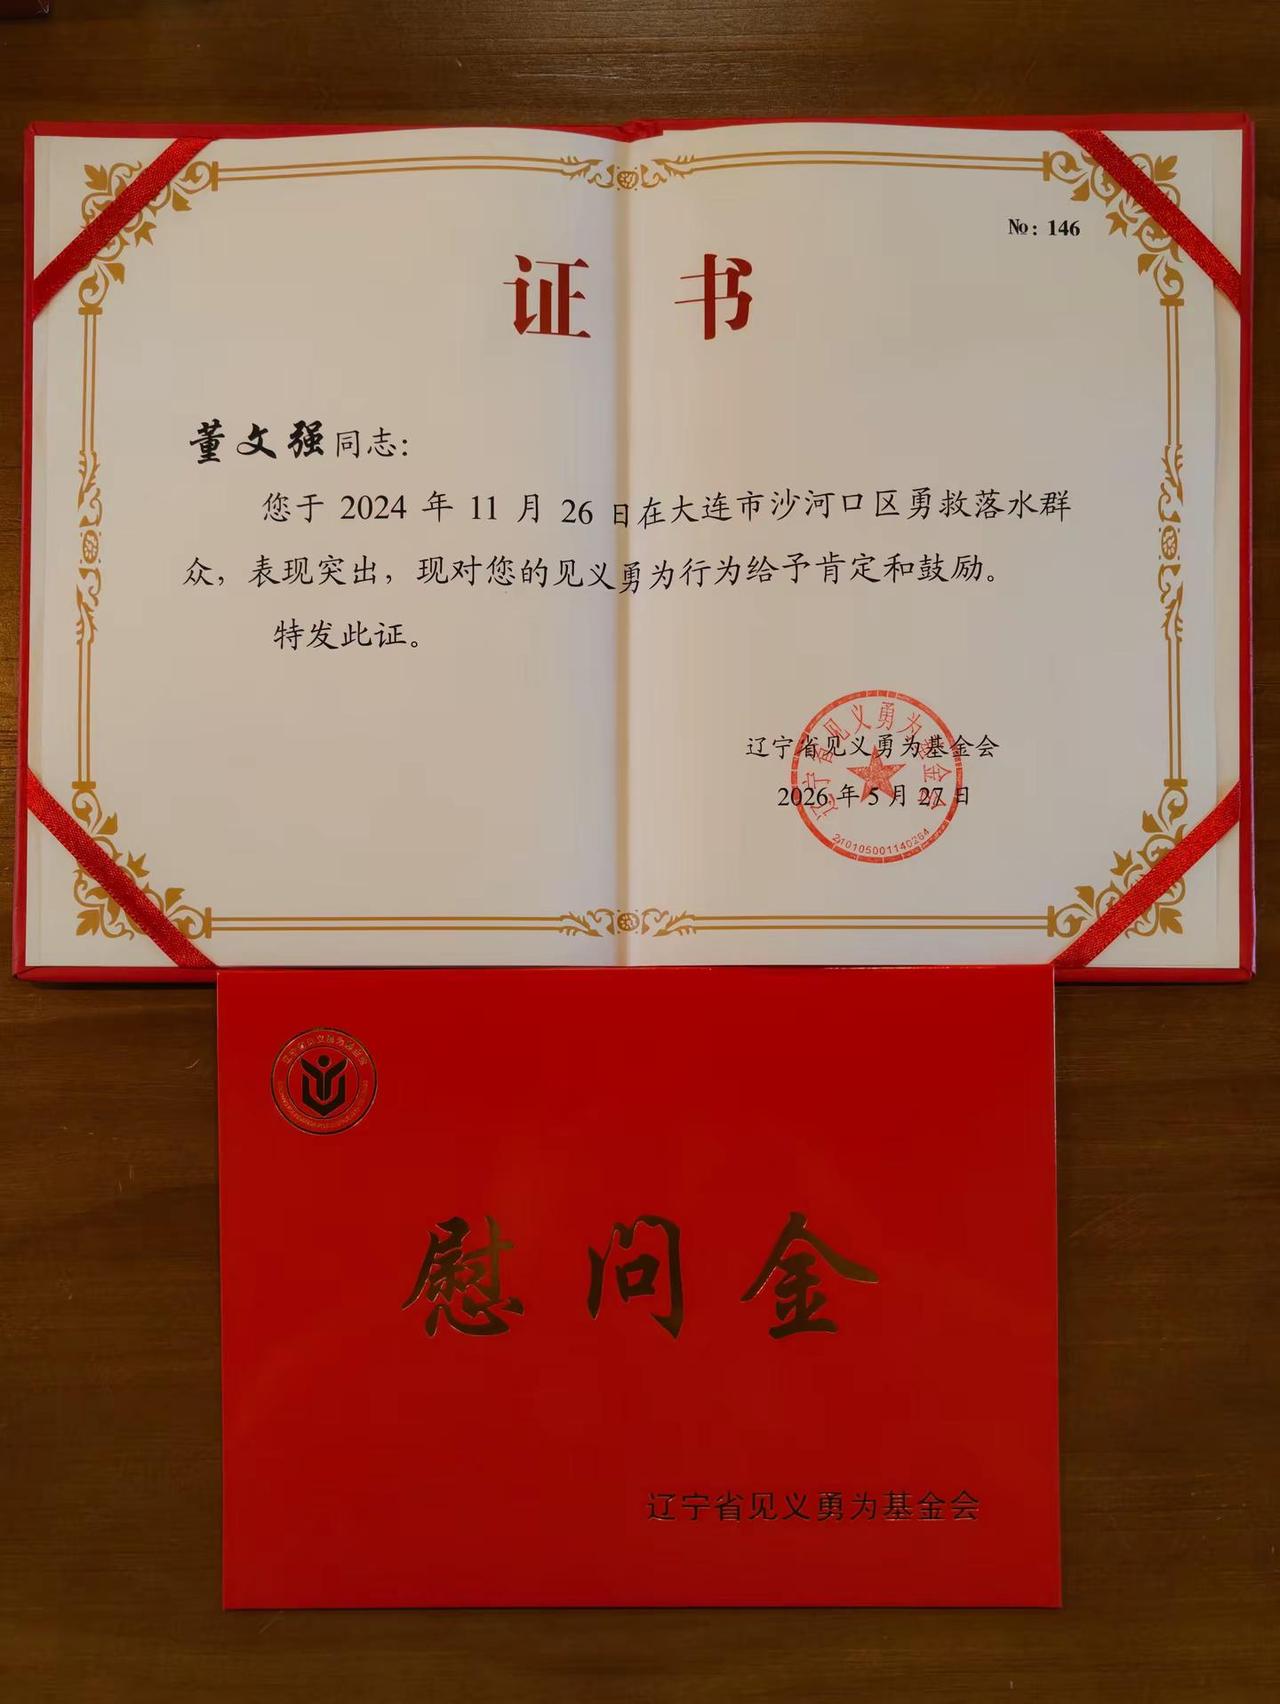 №: 146
证 书
董文强同志:
您于 2024 年 11 月 26 日在大连市沙河口区勇救落水群
众，表现突出，现对您的见义勇为行为给予肯定和鼓励。
特发此证。
辽宁省见义勇为基金会
2026 年 5 月 27 日
辽宁省见义勇为基金会
210105001140264
辽宁省见义勇为基金会
慰问金
辽宁省见义勇为基金会